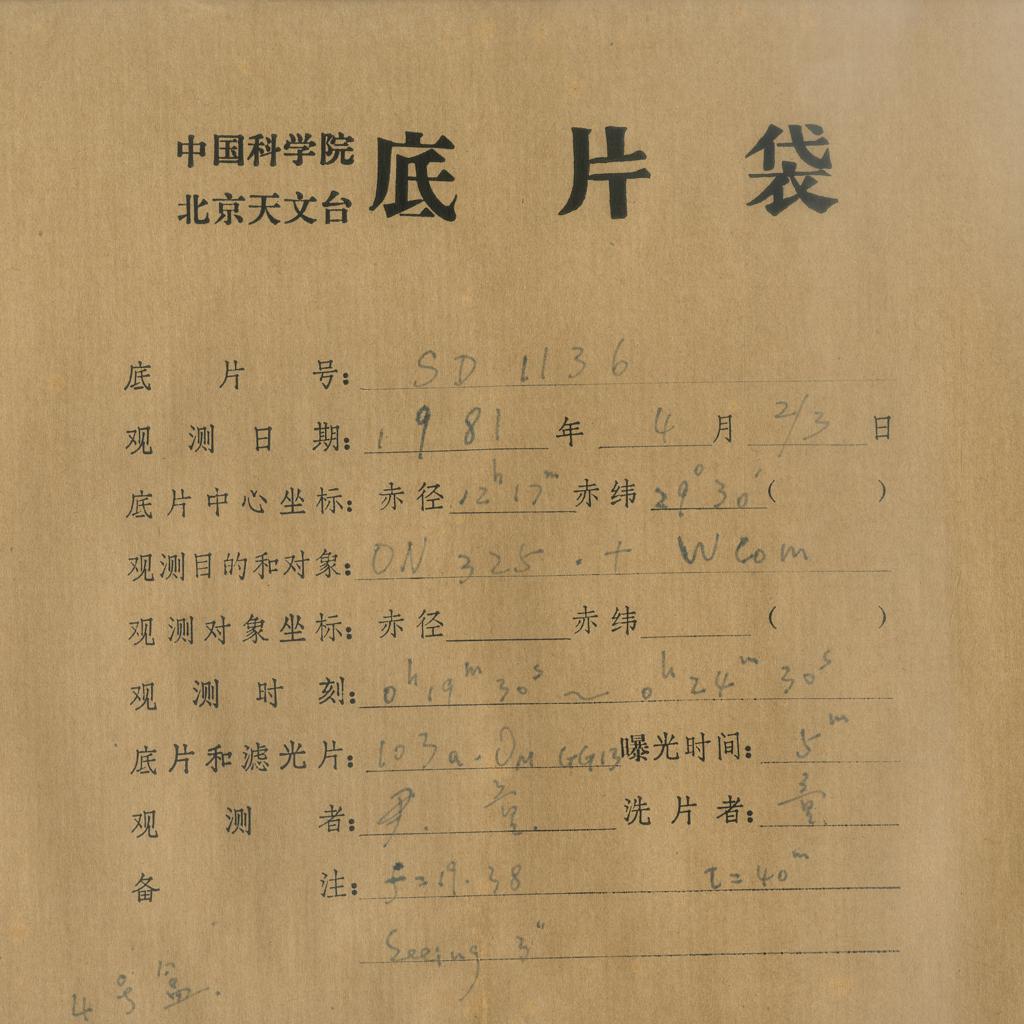 中国科学院
北京天文台
底片袋
底片号：SD 1136
观测日期：1981年 4月 2/3日
底片中心坐标：赤径 12h 17m 赤纬 29°30′（ ）
观测目的和对象：ON 325 . + W Com
观测对象坐标：赤径 赤纬 （ ）
观测时刻：0h 19m 30s ~ 0h 24m 30s
底片和滤光片：103a-O GG13 曝光时间：5m
观测者：尹. 洗片者：
备注：f=19.38 t=40m
Seeing 3″
4号盒.